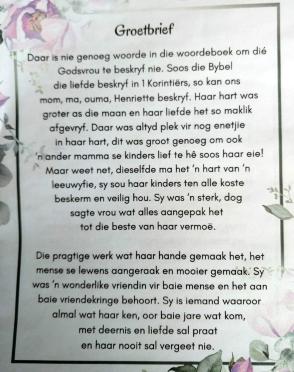 Groetbrief
Daar is nie genoeg woorde in die woordeboek om dié
Godsvrou te beskryf nie. Soos die Bybel
die liefde beskryf in 1 Korintiërs, so kan ons
mom, ma, ouma, Henriette beskryf. Haar hart was
groter as die maan en haar liefde het so maklik
afgevryf. Daar was altyd plek vir nog enetjie
in haar hart, dit was groot genoeg om ook
'n ander mamma se kinders lief te hê soos haar eie!
Maar weet net, dieselfde ma het 'n hart van 'n
leeuwyfie, sy sou haar kinders ten alle koste
beskerm en veilig hou. Sy was 'n sterk, dog
sagte vrou wat alles aangepak het
tot die beste van haar vermoë.
Die pragtige werk wat haar hande gemaak het, het
mense se lewens aangeraak en mooier gemaak. Sy
was 'n wonderlike vriendin vir baie mense en het aan
baie vriendekringe behoort. Sy is iemand waaroor
almal wat haar ken, oor baie jare wat kom,
met deernis en liefde sal praat
en haar nooit sal vergeet nie.